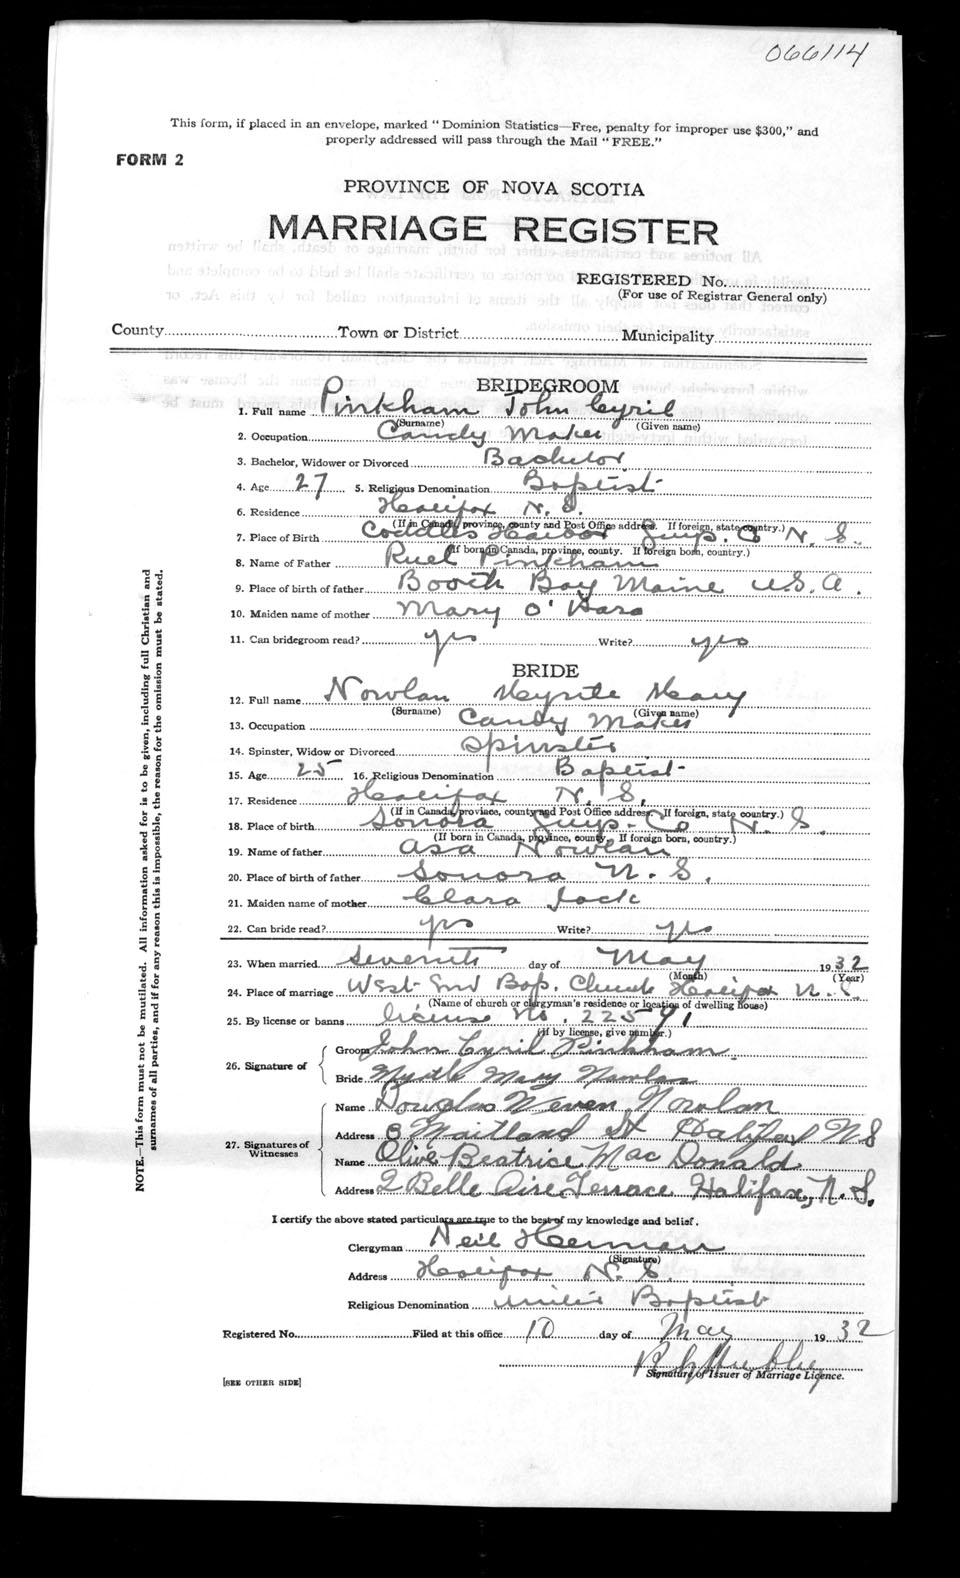 066114
This form, if placed in an envelope, marked "Dominion Statistics—Free, penalty for improper use $300," and
properly addressed will pass through the Mail "FREE."
FORM 2
PROVINCE OF NOVA SCOTIA
MARRIAGE REGISTER
REGISTERED No.
(For use of Registrar General only)
County Town or District Municipality
BRIDEGROOM
1. Full name Pinkham John Cyril
(Surname) (Given name)
2. Occupation Candy Maker
3. Bachelor, Widower or Divorced Bachelor
4. Age 27 5. Religious Denomination Baptist
6. Residence Halifax N. S.
(If in Canada, province, county and Post Office address. If foreign, state country.)
7. Place of Birth Coddles Harbor Guys. Co N. S.
(If born in Canada, province, county. If foreign born, country.)
8. Name of Father Ruel Pinkham
9. Place of birth of father Booth Bay Maine U.S.A.
10. Maiden name of mother Mary O'Hara
11. Can bridegroom read? yes Write? yes
BRIDE
12. Full name Nowlan Myrtle Mary
(Surname) (Given name)
13. Occupation Candy Maker
14. Spinster, Widow or Divorced Spinster
15. Age 25 16. Religious Denomination Baptist
17. Residence Halifax N. S.
(If in Canada, province, county and Post Office address. If foreign, state country.)
18. Place of birth Sonora Guys. Co N. S.
(If born in Canada, province, county. If foreign born, country.)
19. Name of father Asa Nowlan
20. Place of birth of father Sonora N. S.
21. Maiden name of mother Clara Jack
22. Can bride read? yes Write? yes
23. When married Seventh day of May 1932
(Month) (Year)
24. Place of marriage West End Bap. Church Halifax N. S.
(Name of church or clergyman's residence or location of dwelling house)
25. By license or banns License No. 22571
(If by license, give number.)
26. Signature of Groom John Cyril Pinkham
Bride Myrtle Mary Nowlan
27. Signatures of Witnesses
Name Douglas Nowlan
Address 3 Maitland St Halifax N S
Name Olive Beatrice MacDonald
Address 2 Belle Aire Terrace Halifax, N. S.
I certify the above stated particulars are true to the best of my knowledge and belief.
Clergyman Neil Herman
(Signature)
Address Halifax N. S.
Religious Denomination United Baptist
Registered No. Filed at this office 10 day of May 1932
Signature of Issuer of Marriage Licence.
[SEE OTHER SIDE]
NOTE.—This form must not be mutilated. All information asked for is to be given, including full Christian and
surnames of all parties, and if for any reason this is impossible, the reason for the omission must be stated.